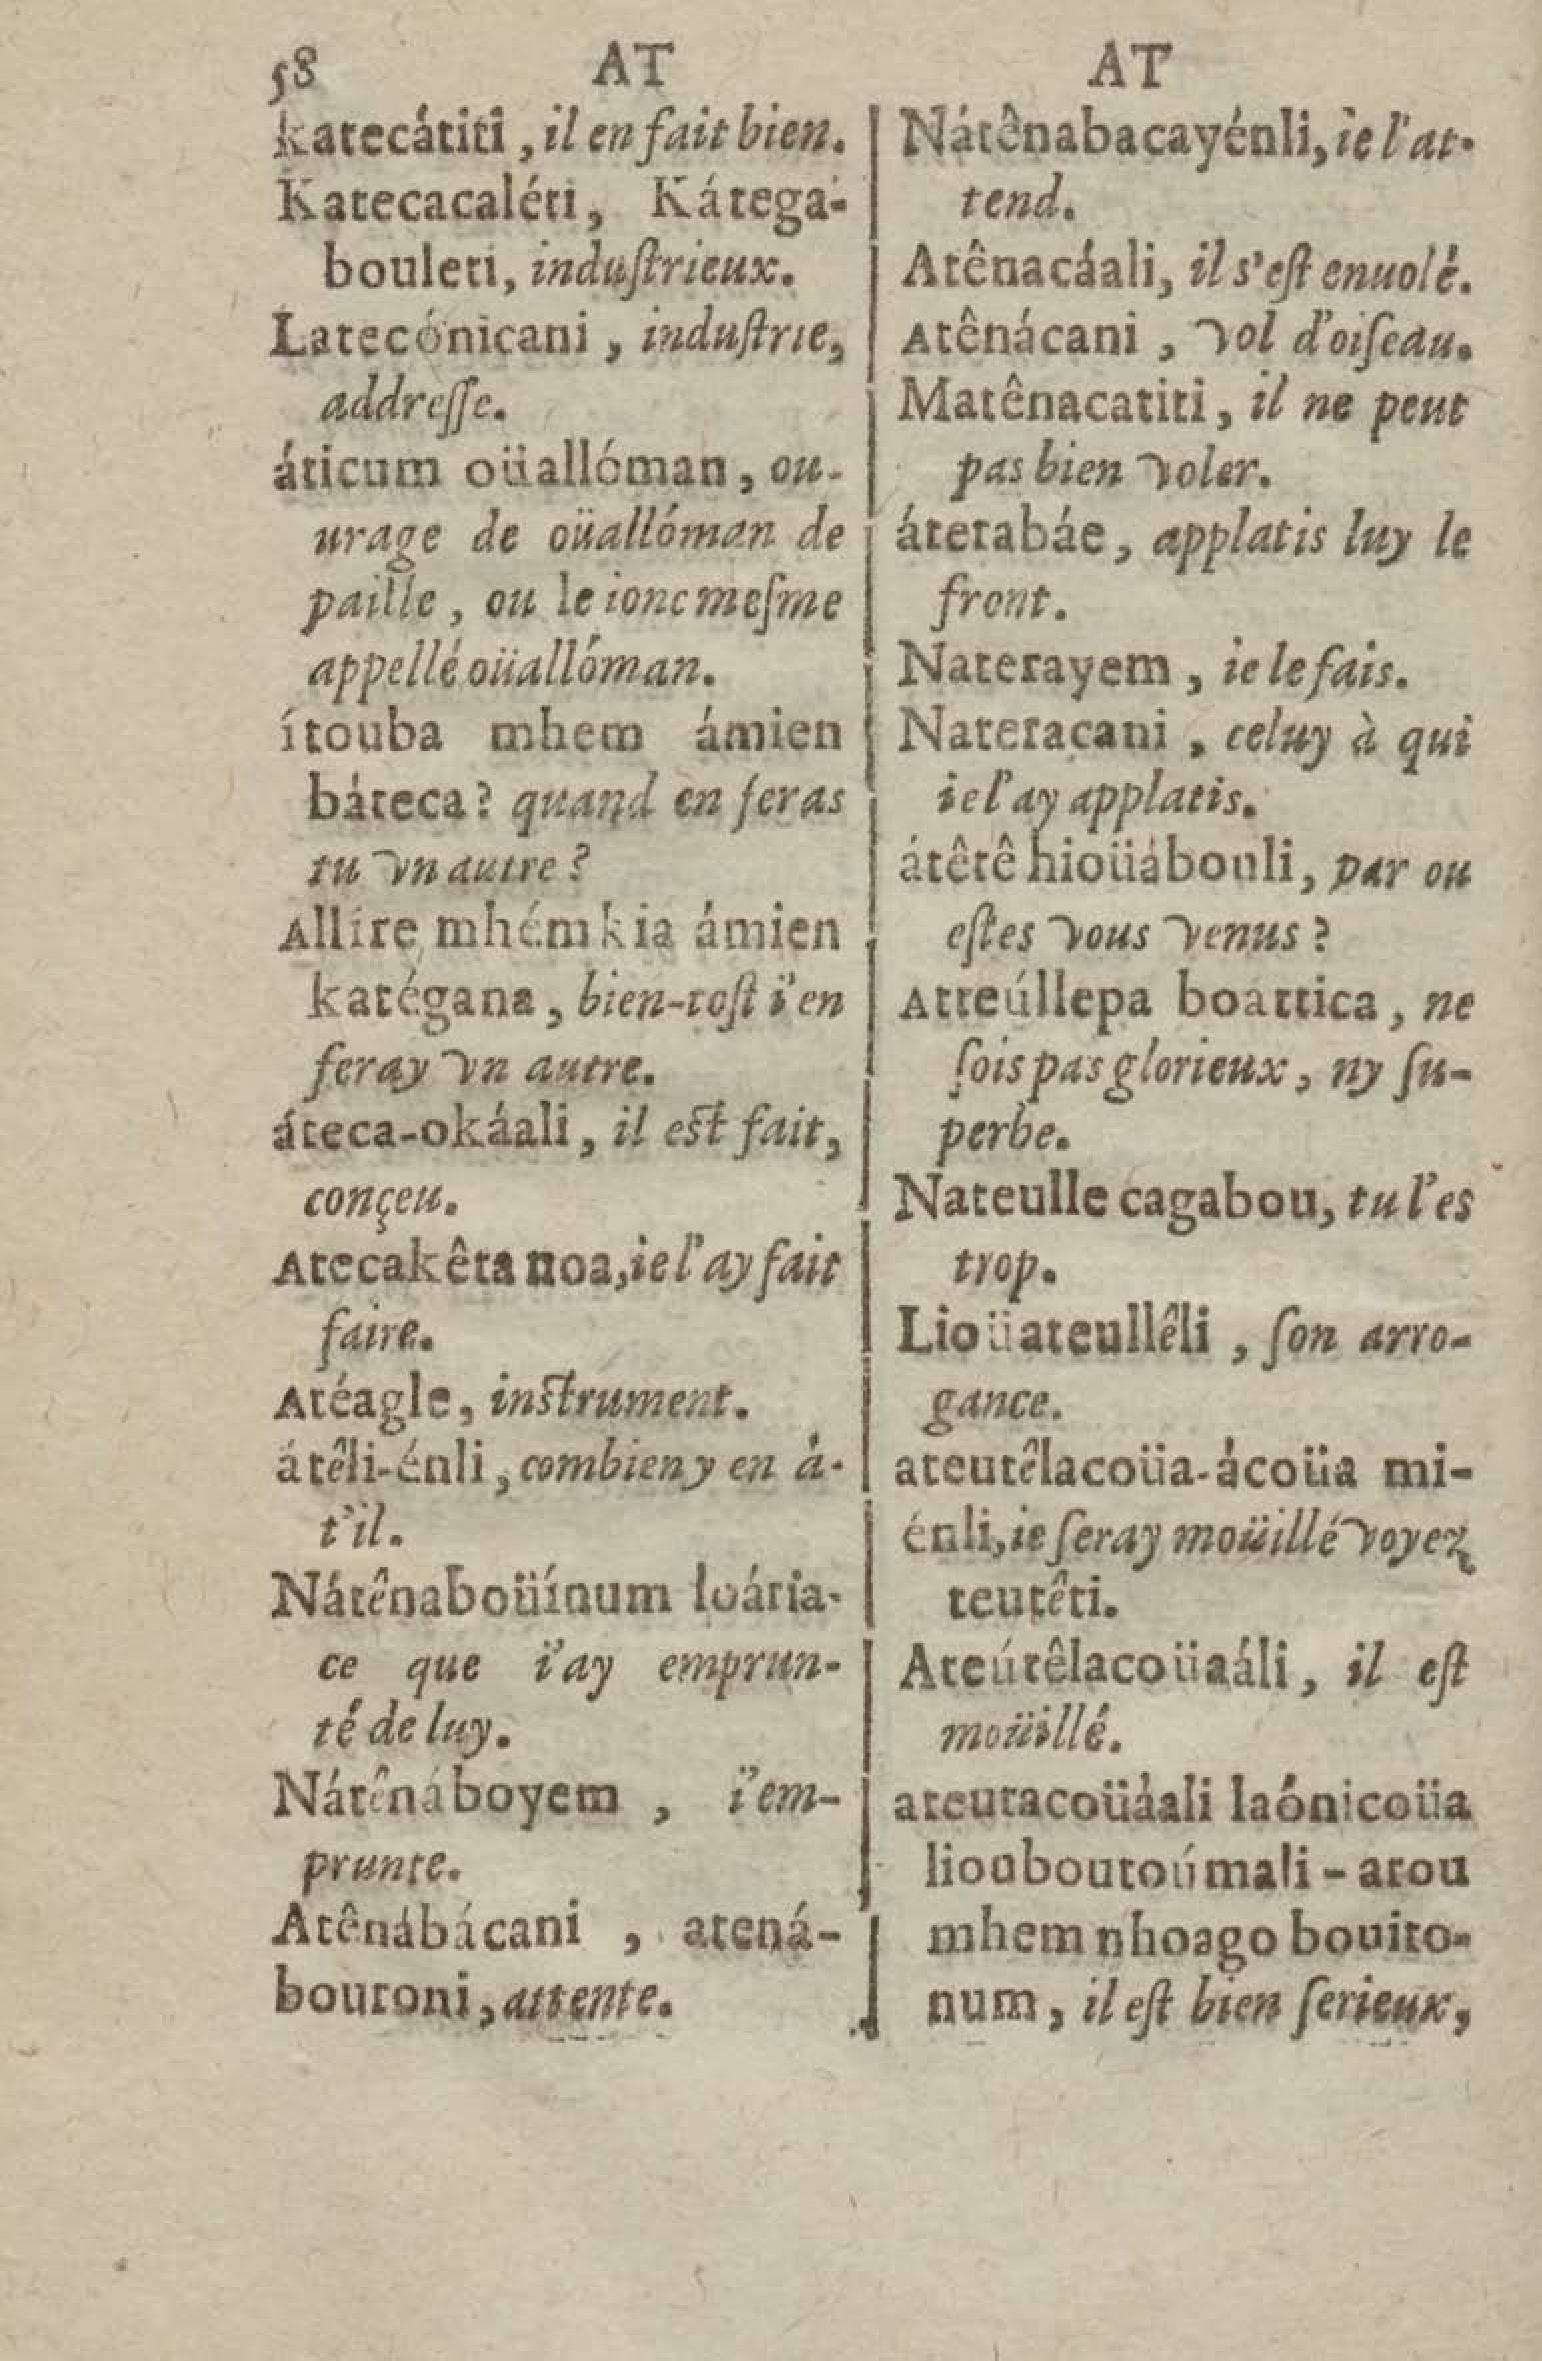 58 AT AT
katecátitî, il en fait bien.
Katecacaléti, Kátega-
bouleti, induſtrieux.
Latecónicani, induſtrie,
addreſſe.
áticum oüallóman, ou-
urage de oüallóman de
paille, ou le ionc meſme
appellé oüallóman.
ítouba mhem ámien
báteca? quand en feras
tu vn autre?
Allire mhémkia ámien
katégana, bien-toſt i'en
feray vn autre.
áteca-okáali, il eſt fait,
conçeu.
Atecakêta noa, ie l'ay fait
faire.
Atéagle, inſtrument.
átêli-énli, combien y en à-
t'il.
Nátênaboüínum loária-
ce que i'ay emprun-
té de luy.
Nátênáboyem, i'em-
prunte.
Atênábácani, atená-
boutoni, attente.
Nátênabacayénli, ie l'at-
tend.
Atênacáali, il s'eſt enuolé.
Atênácani, vol d'oiſeau.
Matênacatiti, il ne peut
pas bien voler.
áterabáe, applatis luy le
front.
Naterayem, ie le fais.
Nateracani, celuy à qui
ie l'ay applatis.
átêtê hioüábouli, par ou
eſtes vous venus?
Atteúllepa boattica, ne
ſois pas glorieux, ny ſu-
perbe.
Nateulle cagabou, tu l'es
trop.
Lioüateullêli, ſon arro-
gance.
ateutêlacoüa-ácoüa mi-
énli, ie ſeray moüillé voyez
teutêti.
Ateútêlacoüaáli, il eſt
moüillé.
ateutacoüáali laónicoüa
liouboutoúmali-atou
mhem nhoago bouito-
num, il eſt bien ſerieux,